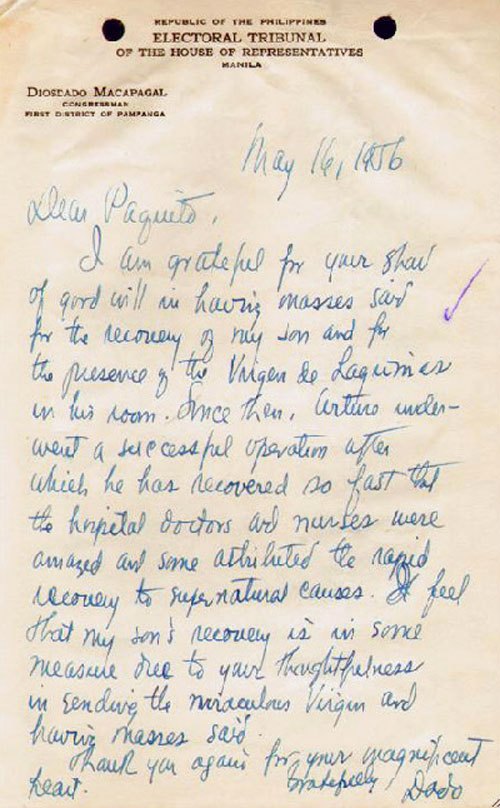 REPUBLIC OF THE PHILIPPINES
ELECTORAL TRIBUNAL
OF THE HOUSE OF REPRESENTATIVES
MANILA
DIOSDADO MACAPAGAL
CONGRESSMAN
FIRST DISTRICT OF PAMPANGA
May 16, 1956
Dear Paquito,
I am grateful for your
of good will in having masses said
for the recovery of my son and for
the presence of the Virgen de Lagrimas
in his room. Since then, Arturo under-
went a successful operation after
which he has recovered so fast that
the hospital doctors and nurses were
amazed and some attributed the rapid
recovery to supernatural causes. I feel
that my son's recovery is in some
measure due to your thoughtfulness
in sending the miraculous Virgin and
having masses said.
Thank you again for your magnificent
heart.
Gratefully,
Dado